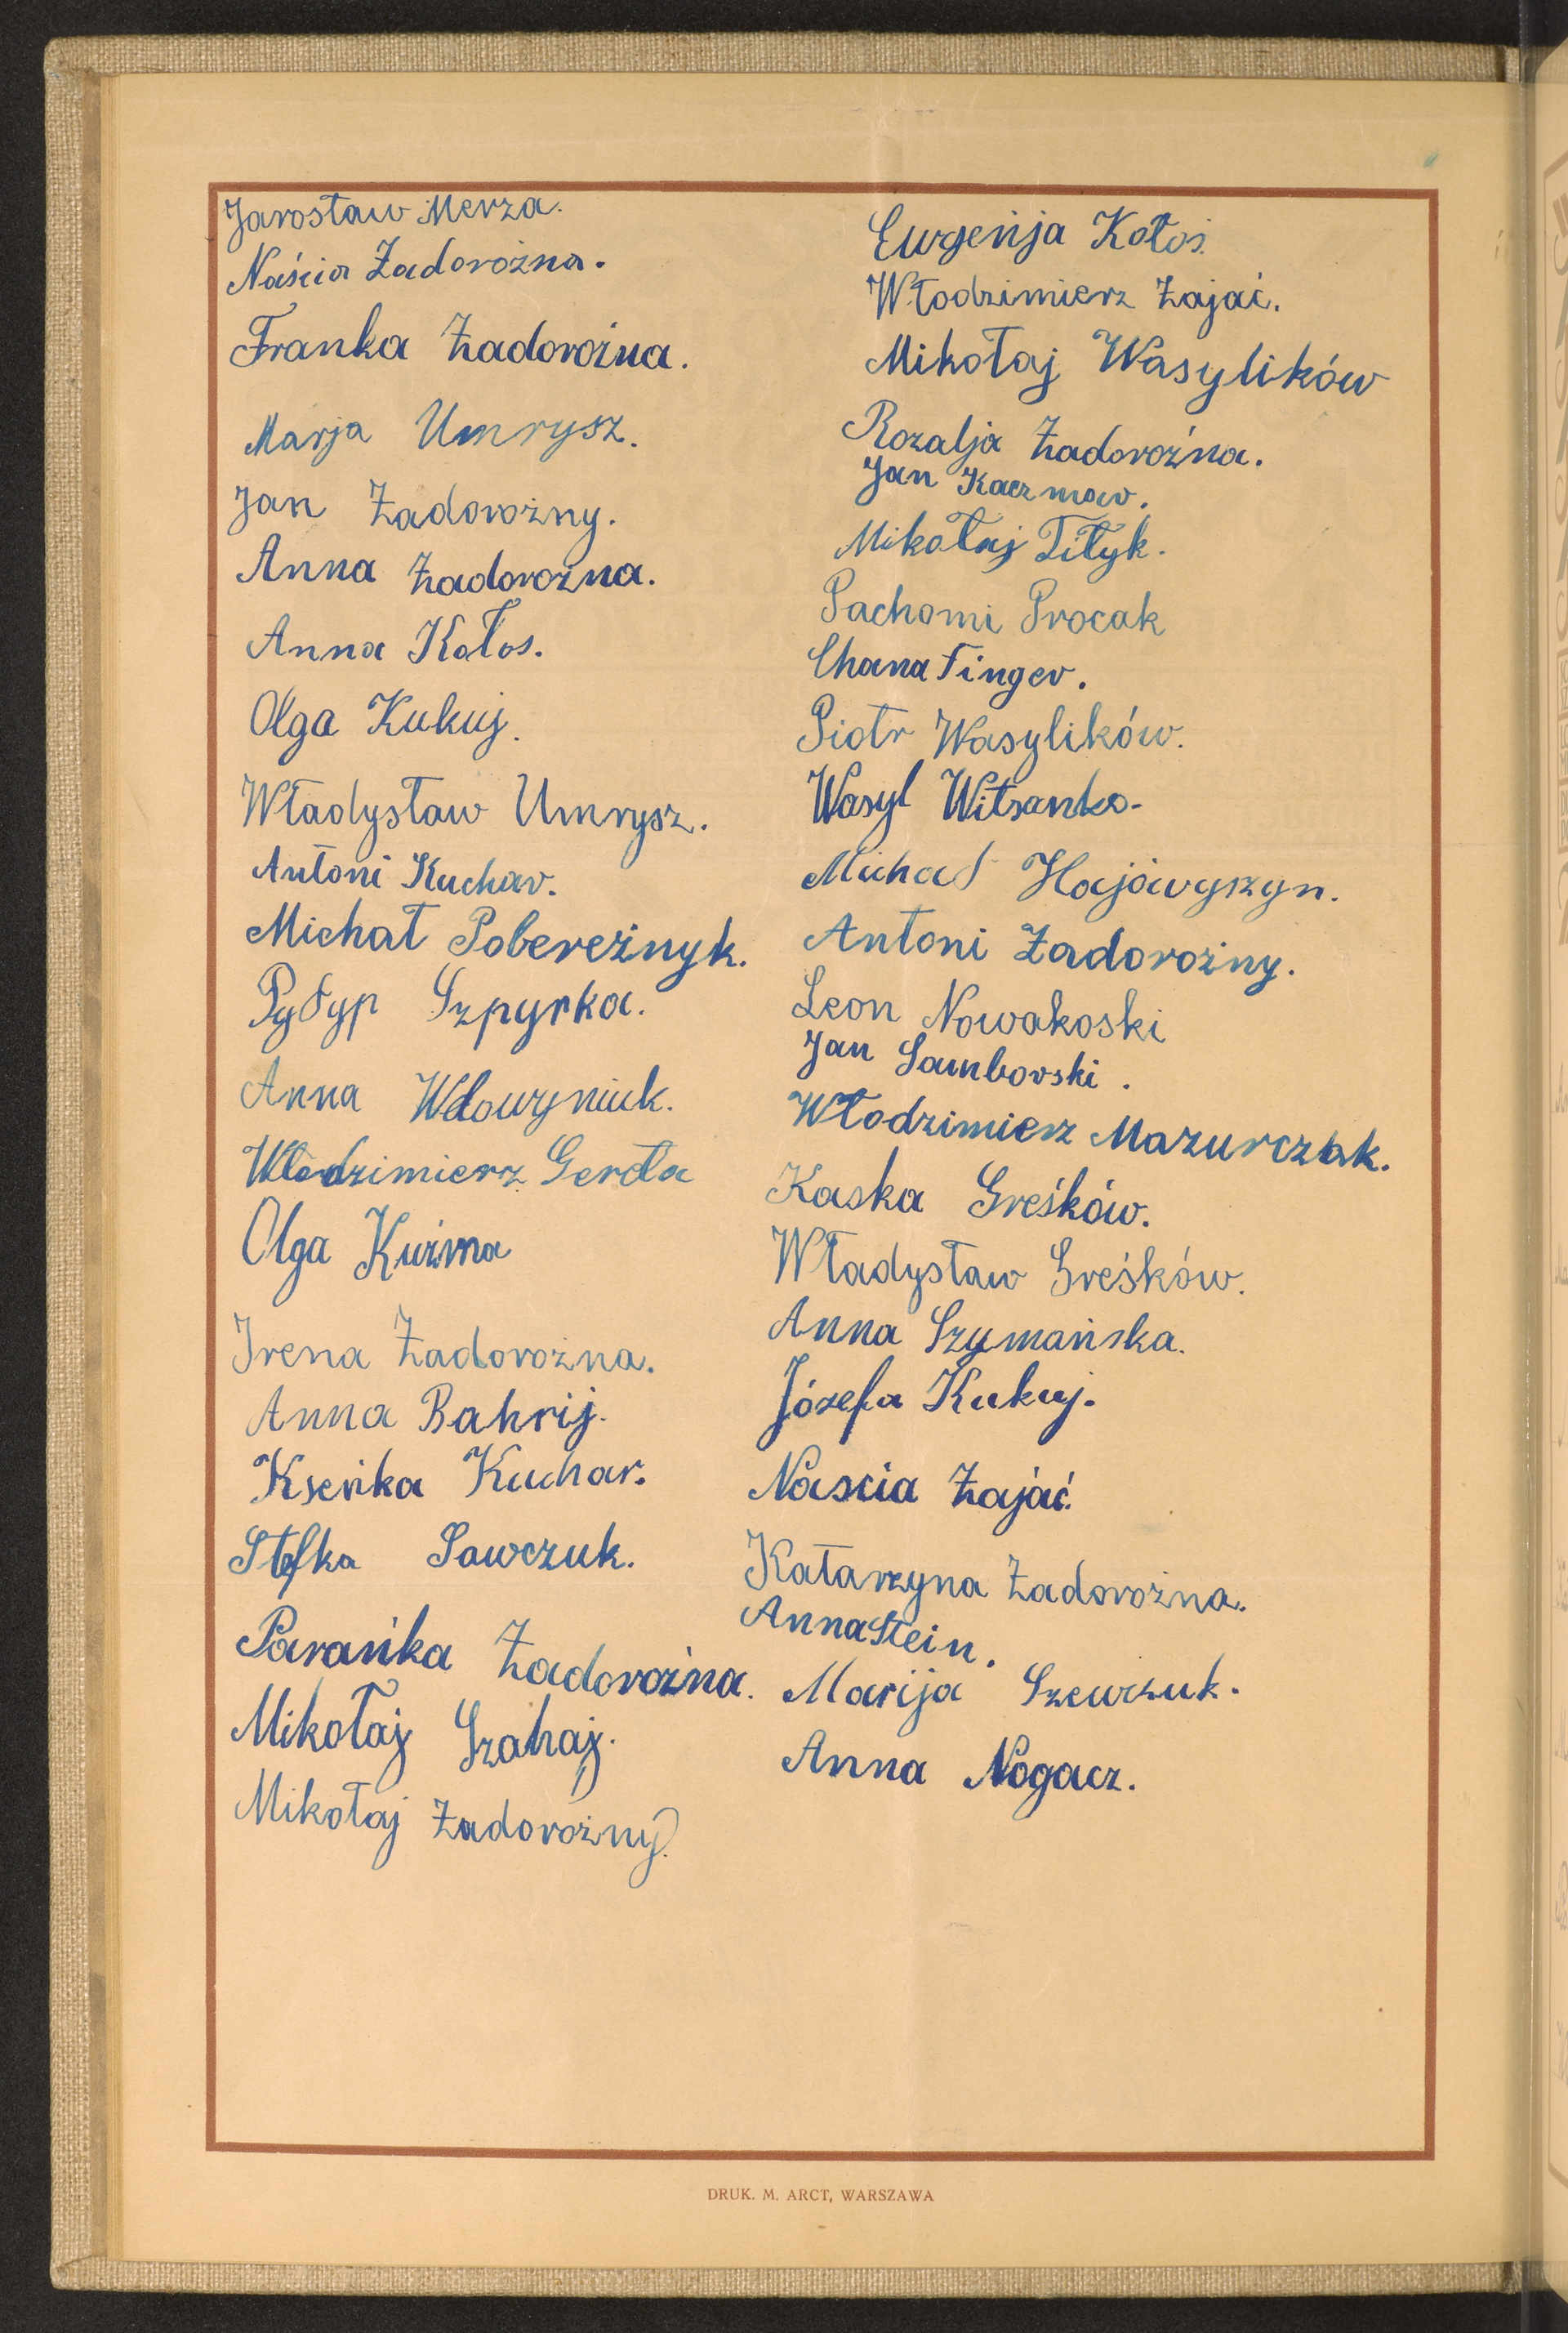 Jarosław Merza.
Naścia Zadorożna.
Franka Zadorożna.
Marja Umrysz.
Jan Zadorożny.
Anna Zadorożna.
Anna Kołos.
Olga Kukuj.
Władysław Umrysz.
Antoni Kuchar.
Michał Pobereżnyk.
Pyłyp Szpyrka.
Anna
Włodzimierz Gerdła
Olga Kuźma
Irena Zadorożna.
Anna Bahrij.
Kseńka Kuchar.
Stefka Sawczuk.
Parańka Zadorożna.
Mikołaj Szahaj.
Mikołaj Zadorożny.
Eugenja Kołos.
Włodzimierz Zająć.
Mikołaj Wasylików
Rozalja Zadorożna.
Jan Kaczmar.
Mikołaj Tityk.
Pachomi Procak
Chana Finger.
Piotr Wasylików.
Wasyl
Michał Hajowyszyn.
Antoni Zadorożny.
Leon Nowakoski
Jan Samborski.
Włodzimierz Mazurczak.
Kaska Greśków.
Władysław Greśków.
Anna Szymańska.
Józefa Kukuj.
Nascia Zająć.
Katarzyna Zadorożna.
Anna Stein.
Marija Szewczuk.
Anna Nogacz.
DRUK. M. ARCT, WARSZAWA